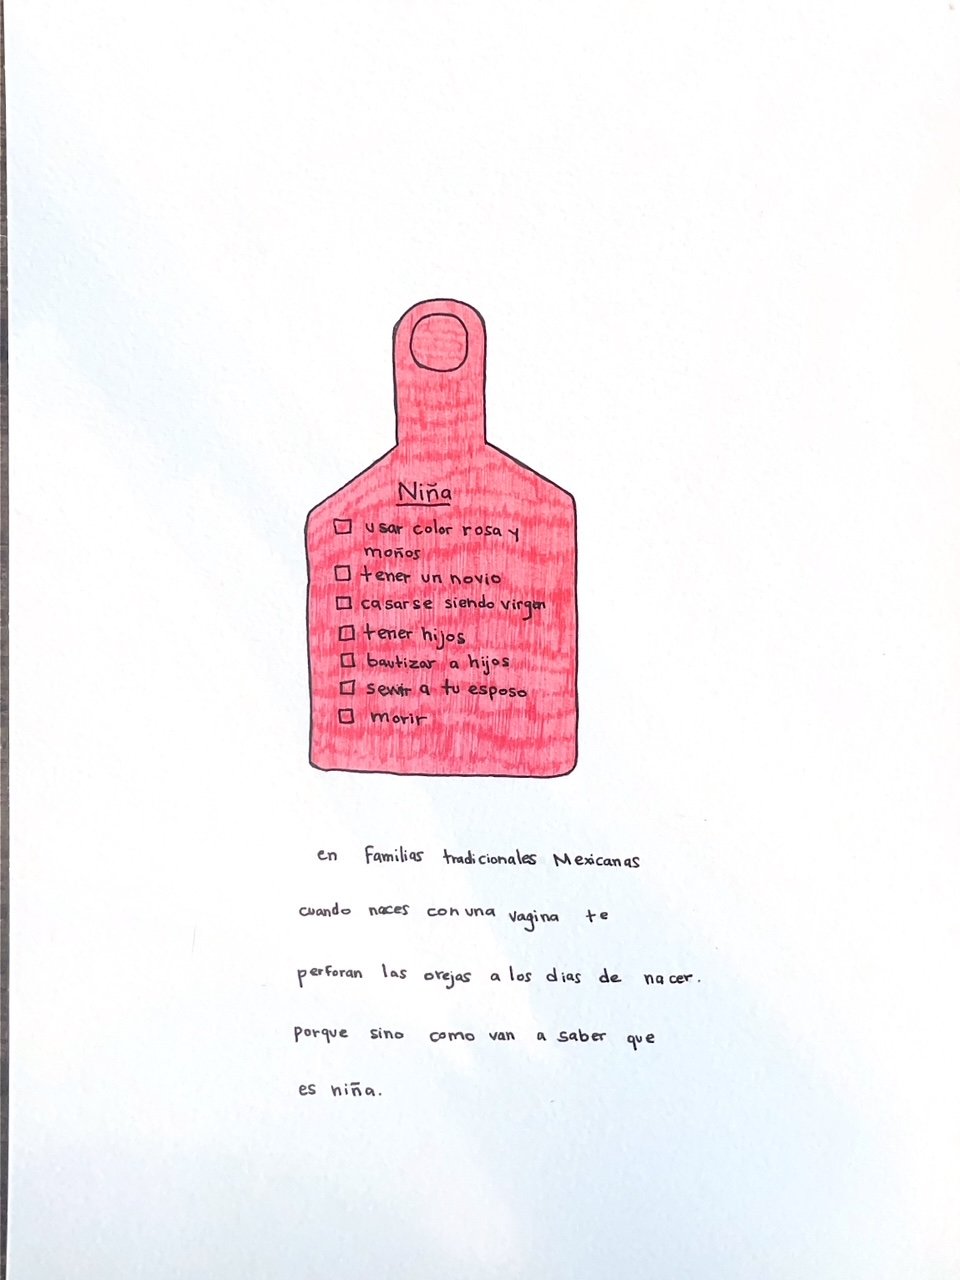 Niña
usar color rosa y
moños
tener un novio
casarse siendo virgen
tener hijos
bautizar a hijos
servir a tu esposo
morir
en familias tradicionales Mexicanas
cuando naces con una vagina te
perforan las orejas a los dias de nacer.
porque sino como van a saber que
es niña.